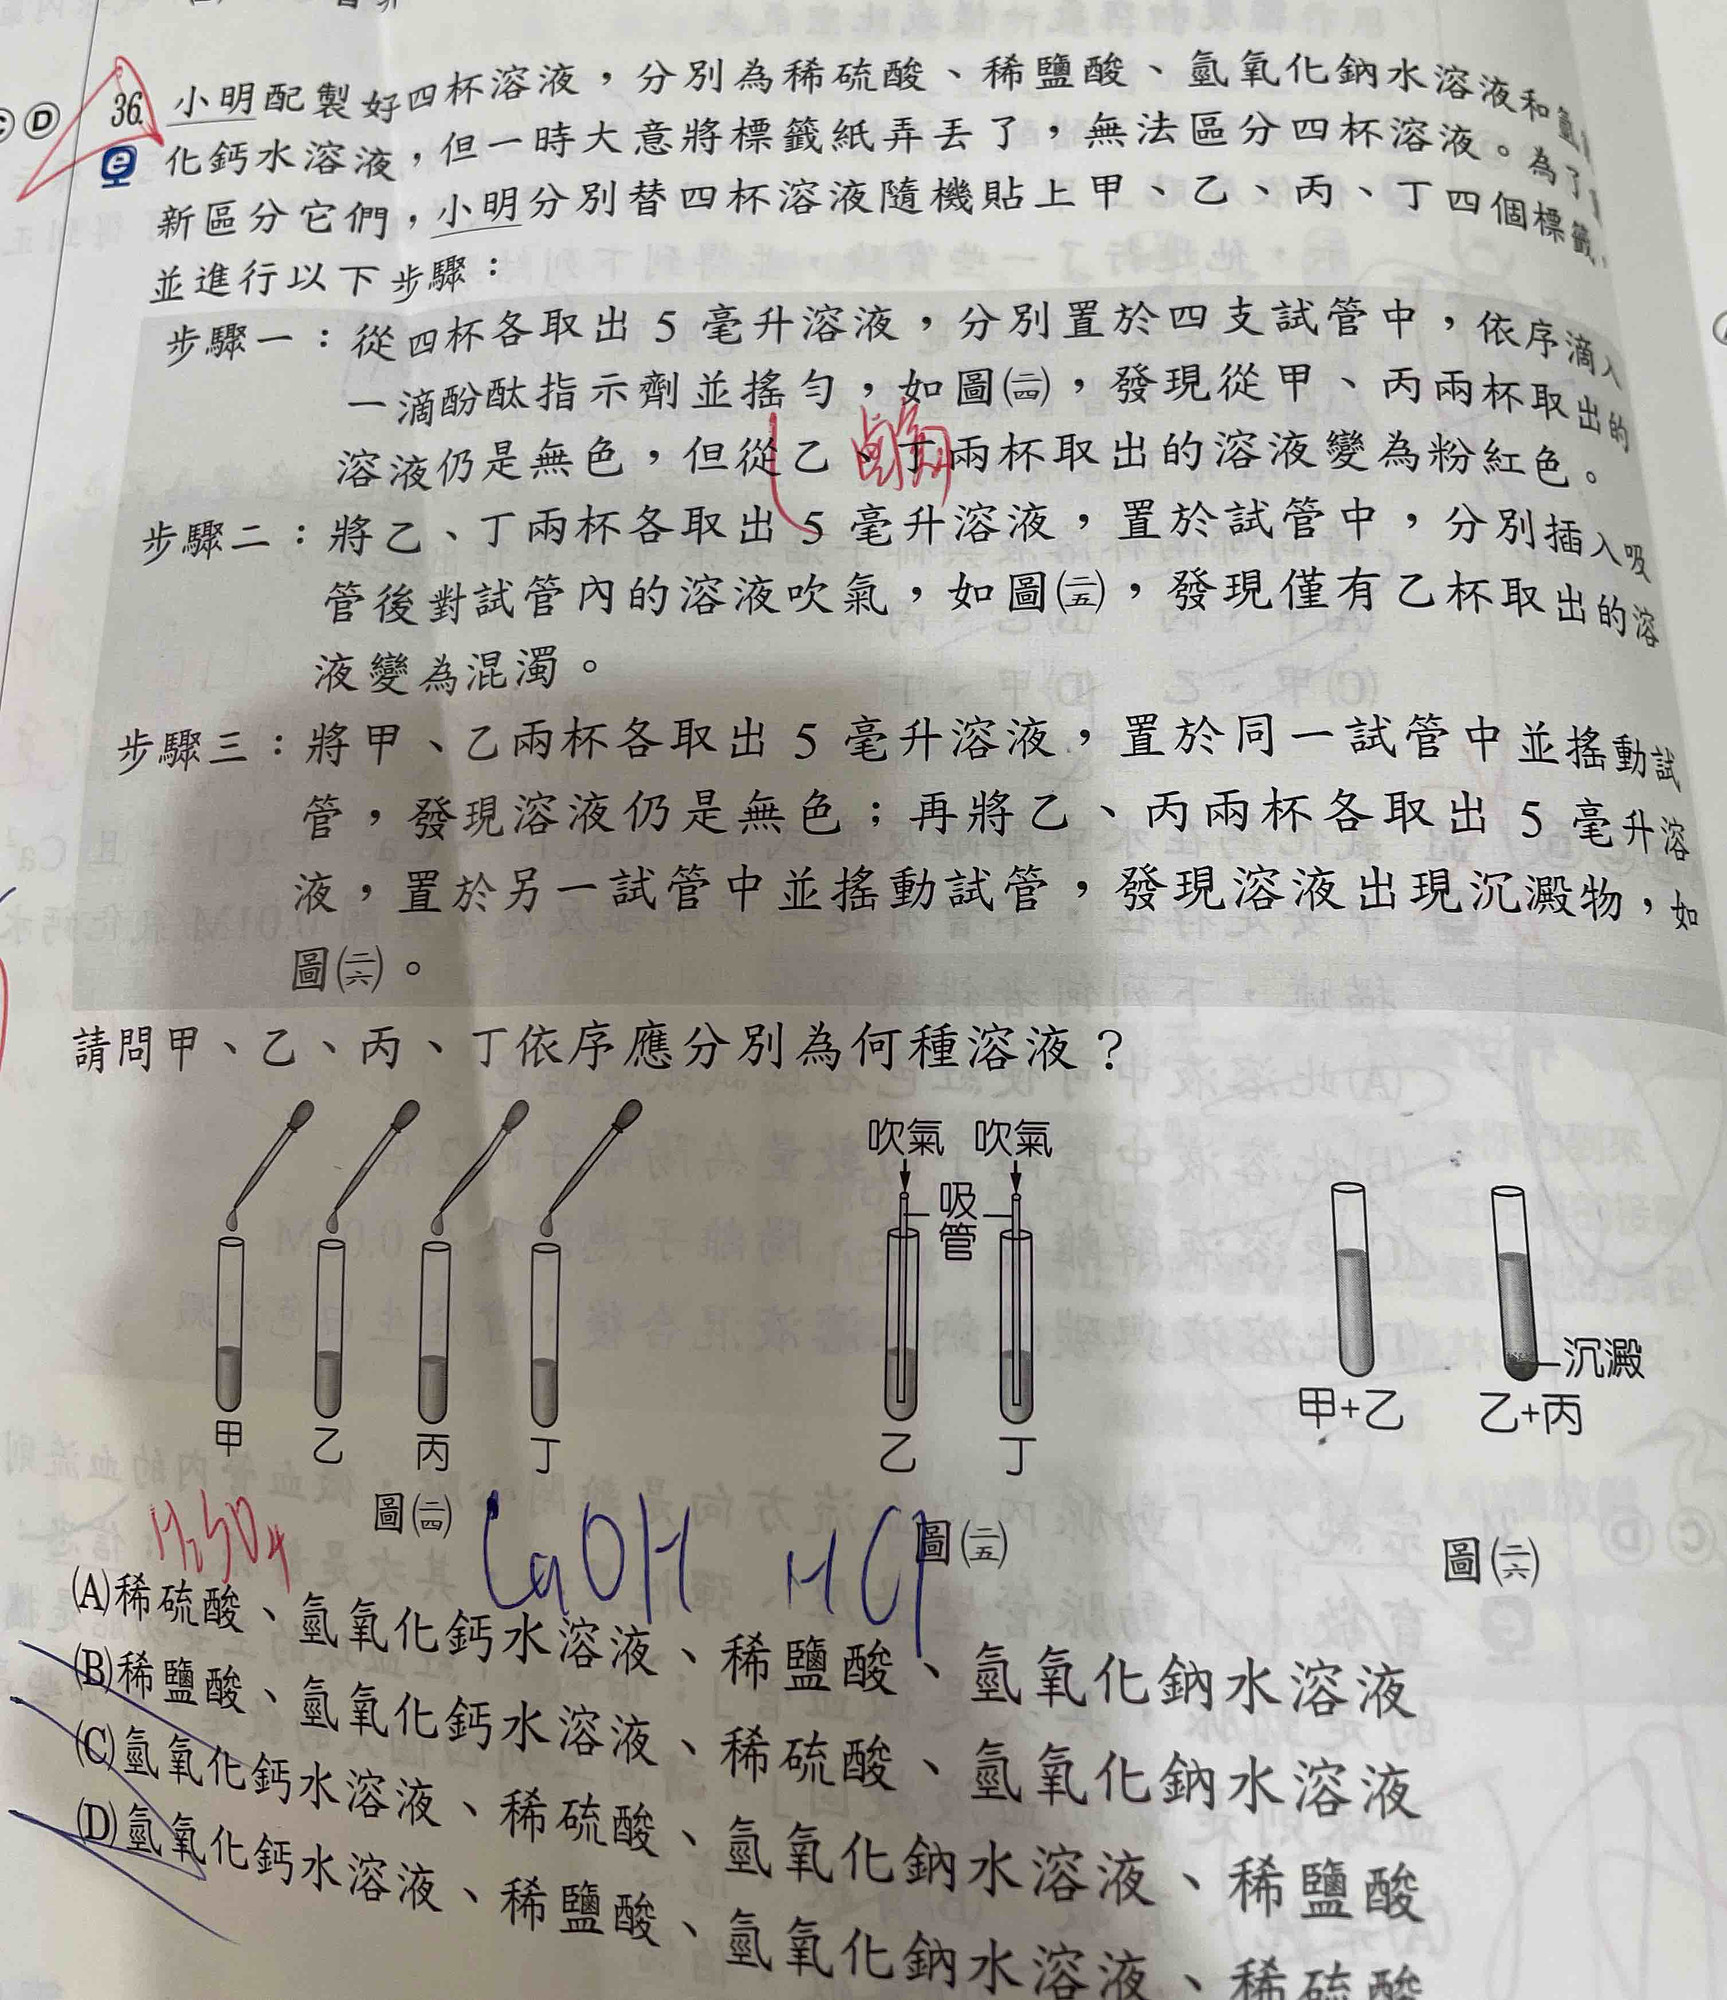 36. 小明配製好四杯溶液，分別為稀硫酸、稀鹽酸、氫氧化鈉水溶液和氫
化鈣水溶液，但一時大意將標籤紙弄丟了，無法區分四杯溶液。為了
新區分它們，小明分別替四杯溶液隨機貼上甲、乙、丙、丁四個標籤，
並進行以下步驟：
步驟一：從四杯各取出 5 毫升溶液，分別置於四支試管中，依序滴入
一滴酚酞指示劑並搖勻，如圖㈡㈣，發現從甲、丙兩杯取出的
溶液仍是無色，但從乙、丁兩杯取出的溶液變為粉紅色。
步驟二：將乙、丁兩杯各取出 5 毫升溶液，置於試管中，分別插入吸
管後對試管內的溶液吹氣，如圖(二五)，發現僅有乙杯取出的溶
液變為混濁。
步驟三：將甲、乙兩杯各取出 5 毫升溶液，置於同一試管中並搖動試
管，發現溶液仍是無色；再將乙、丙兩杯各取出 5 毫升溶
液，置於另一試管中並搖動試管，發現溶液出現沉澱物，如
圖(二六)。
請問甲、乙、丙、丁依序應分別為何種溶液？
吹氣 吹氣
吸管
沉澱
甲 乙 丙 丁
乙 丁
甲+乙 乙+丙
圖(二四)
圖(二五)
圖(二六)
H₂SO₄ CaOH HCl
(A)稀硫酸、氫氧化鈣水溶液、稀鹽酸、氫氧化鈉水溶液
(B)稀鹽酸、氫氧化鈣水溶液、稀硫酸、氫氧化鈉水溶液
(C)氫氧化鈣水溶液、稀硫酸、氫氧化鈉水溶液、稀鹽酸
(D)氫氧化鈣水溶液、稀鹽酸、氫氧化鈉水溶液、稀硫酸